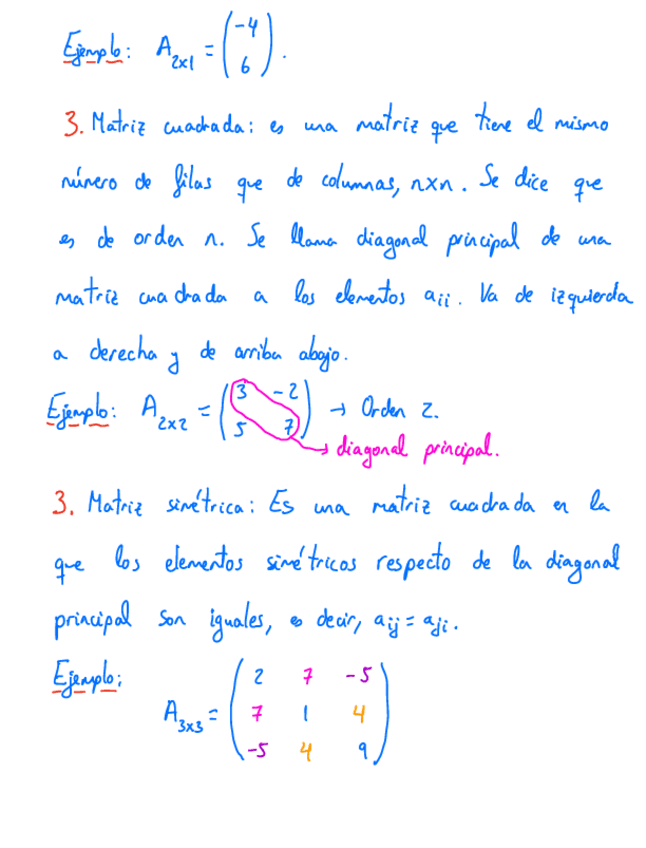 Ejemplo: A₂ₓ₁ = (-4
6).
3. Matriz cuadrada: es una matriz que tiene el mismo
número de filas que de columnas, nxn. Se dice que
es de orden n. Se llama diagonal principal de una
matriz cuadrada a los elementos aᵢᵢ. Va de izquierda
a derecha y de arriba abajo.
Ejemplo: A₂ₓ₂ = (3 -2
5 7) → Orden 2.
→ diagonal principal.
3. Matriz simétrica: Es una matriz cuadrada en la
que los elementos simétricos respecto de la diagonal
principal son iguales, es decir, aᵢⱼ = aⱼᵢ.
Ejemplo:
A₃ₓ₃ = (2 7 -5
7 1 4
-5 4 9)